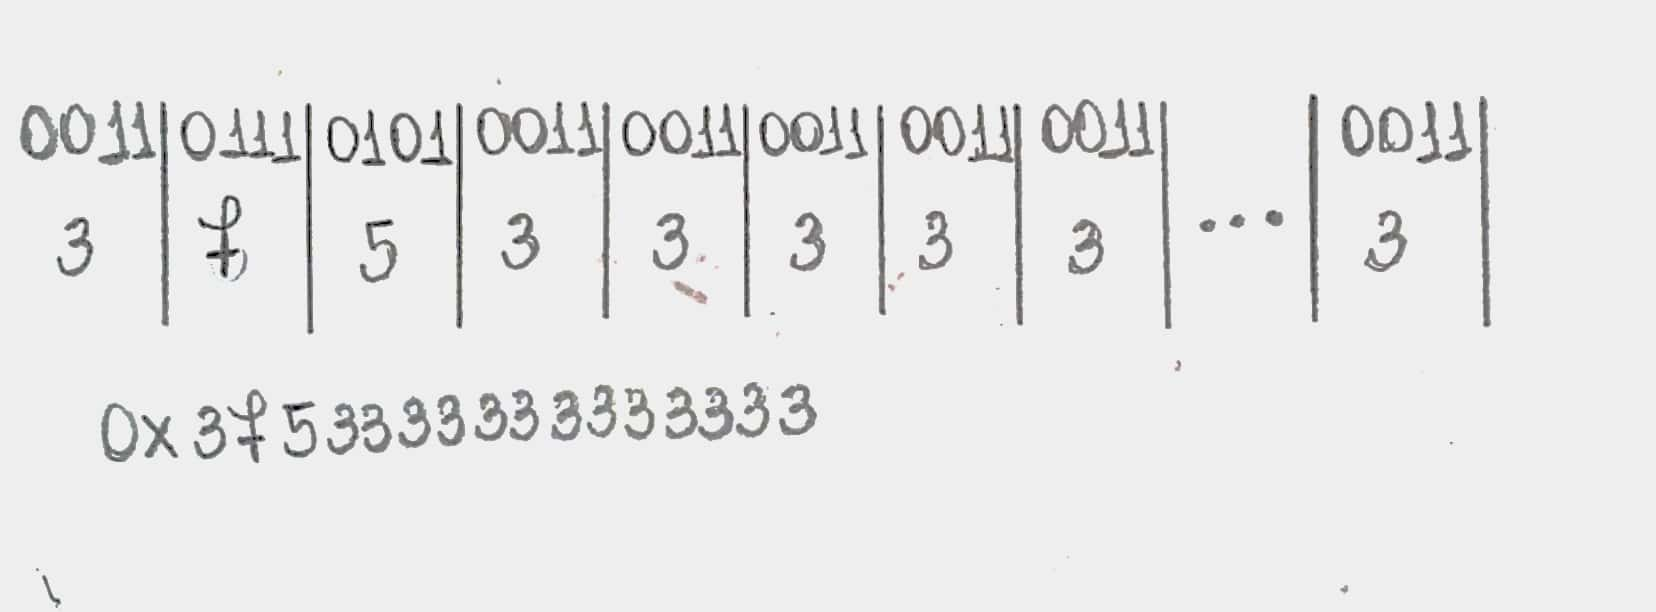 0011|0111|0101|0011|0011|0011|0011|0011| |0011|
3|7|5|3|3|3|3|3|...|3|
0x3753333333333333